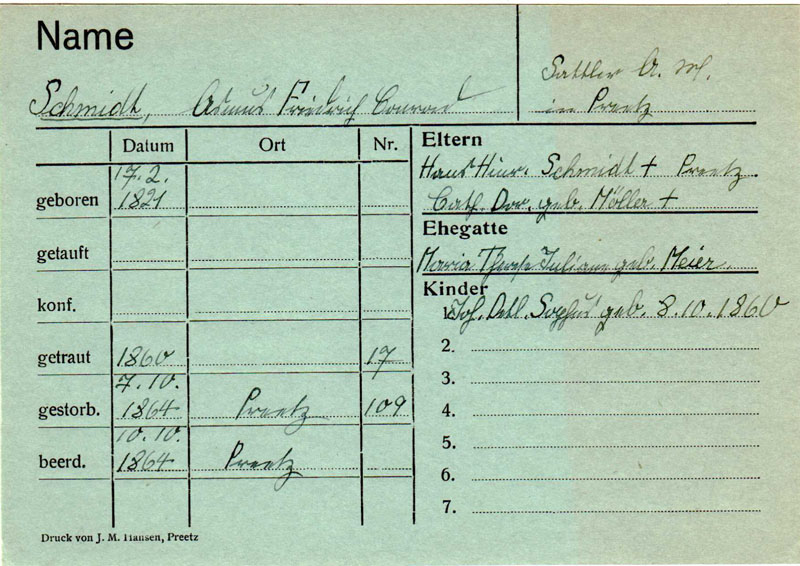 Name
Schmidt, Asmus Friedrich Conrad
Sattler A. M.
in Preetz
Datum Ort Nr.
geboren 17.2. 1821
getauft
konf.
getraut 1860 17
gestorb. 7.10. 1864 Preetz 109
beerd. 10.10. 1864 Preetz
Eltern
Hans Hinr. Schmidt + Preetz
Cath. Dor. geb. Möller +
Ehegatte
Maria Therese Juliane geb. Meier
Kinder
1. Joh. Detl. Sophus geb. 8.10.1860
2.
3.
4.
5.
6.
7.
Druck von J. M. Hansen, Preetz